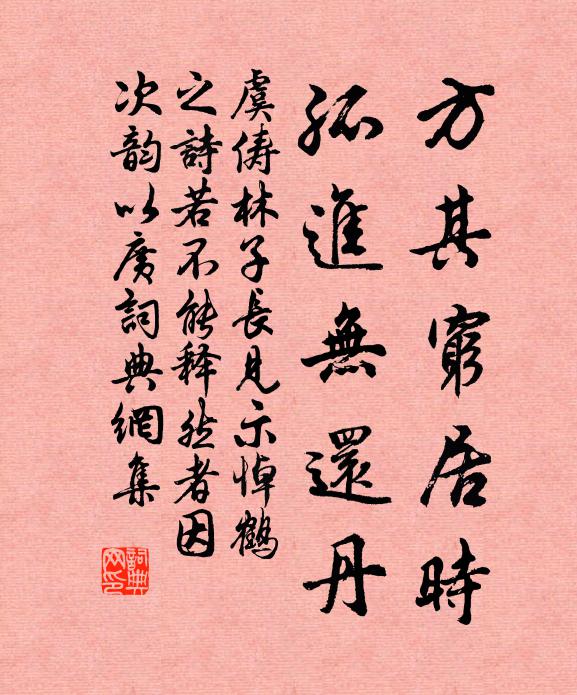 方其窮居時
孤進無還丹
虞儔林子長見示悼鶴
之詩若不能釋然者因
次韵以廣詞典網集
詞典网印